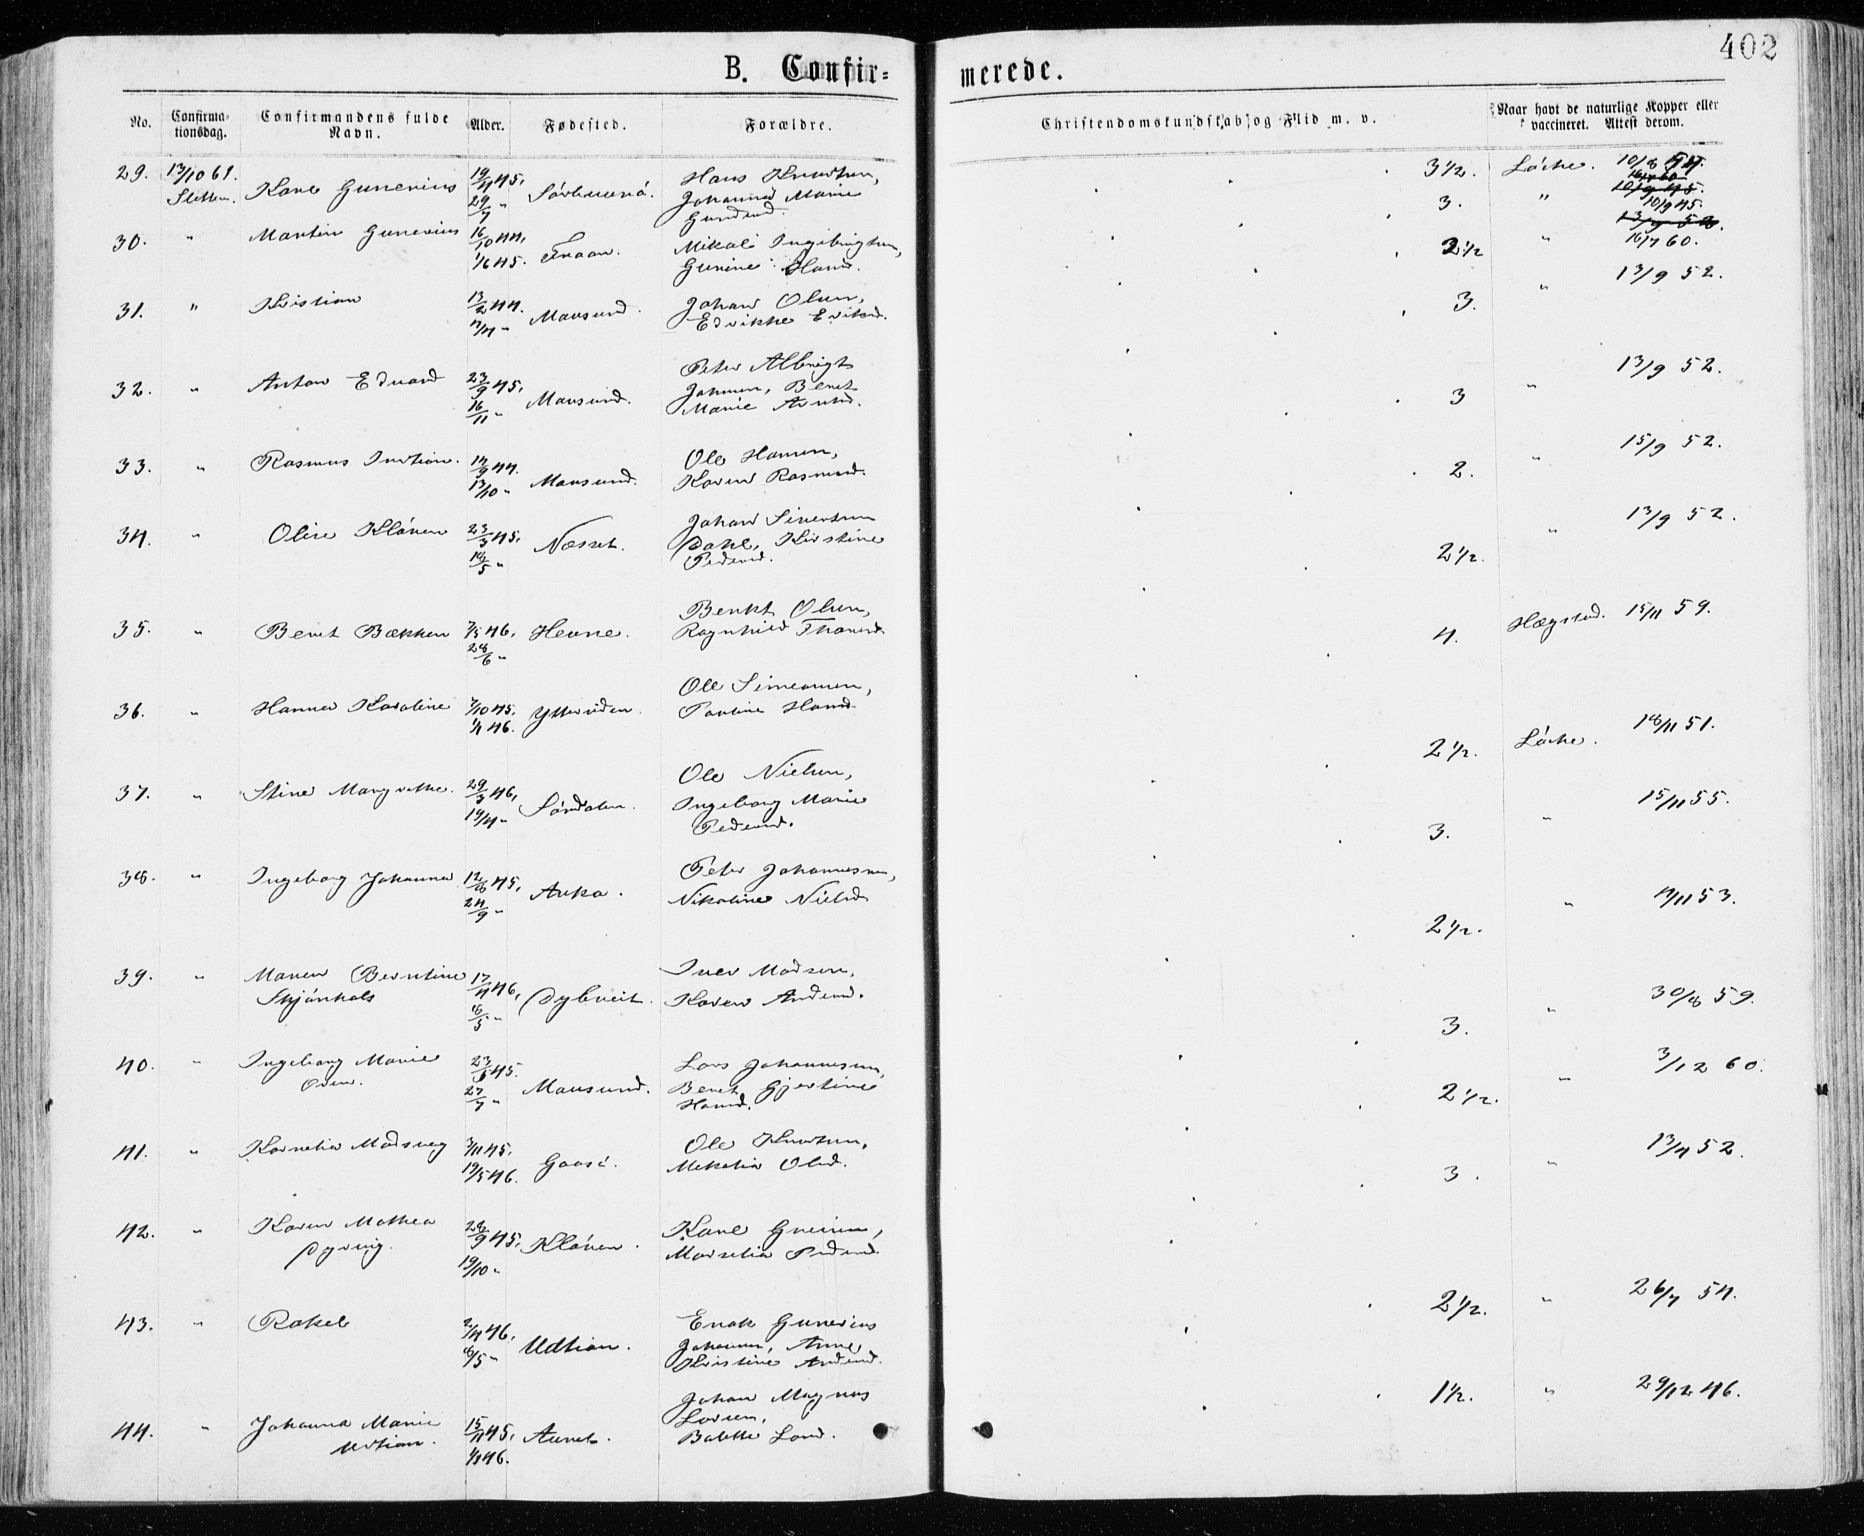 402
B. Confir=
merede.
No.
Confirma-
tionsdag.
Confirmandens fulde
Navn.
Alder.
Fødested.
Forældre.
Christendomskundskab og Flid m. v.
Naar havt de naturlige Kopper eller
vaccineret. Attest derom.
29. 13/10 61. Karl Gunerius 19/4 45. Hans Knudsen,
Sletten. 29/7 " Johanna Marie
3 1/2. Løcke. 10/8 54.
30. " Martin Gunerius 16/10 44. Fraan. Mikal Ingebrigtsen,
1/6 45. Gurine Hansd.
3. " 10/9 45.
31. " Kristian 13/2 44. Mausund. Johan Olsen,
Edvikke
2 1/2 " 16/7 60.
32. " Anton Edvard 23/9 45. Mausund. Peter Albrigt
16/11 " Johnsen, Beret
Marie
3. " 13/9 52.
33. " Rasmus 14/9 44. Mausund. Ole Hansen,
13/10 " Karen Rasmusd.
3 " 13/9 52.
34. " Oline Kløven 23/3 45. Næsset. Johan Sivertsen
18/5 " Dahl, Kirstine
Pedersd.
2. " 15/9 52.
2 1/2. " 13/9 52.
35. " Beret Bækken 7/5 46. Hevne. Benkt Olsen,
28/6 " Ragnhild Thoresd.
4. Hægstad. 15/11 59.
36. " Hanna Karoline 7/10 45. Ole Simeonsen,
1/1 46. Pauline Hansd.
2 1/2. Løcke. 18/11 51.
37. " Stine Margrethe 29/3 46. Sørdalen. Ole Nielsen,
19/4 " Ingeborg Marie
Pedersd.
3. " 15/11 55.
38. " Ingeborg Johanna 12/8 45. Peter Johannesen,
24/9 " Nikoline Nielsd.
2 1/2. " 4/11 53.
39. " Maren Berntine 17/4 46. Dybveit. Iver Madsen,
Skjønhals 8/5 " Karen Andersd.
3. " 30/8 59.
40. " Ingeborg Marie 23/5 45. Mausund. Lars Johannesen,
27/7 " Beret Gjertine
Hansd.
2 1/2. " 3/12 60.
41. " Kornelia Madsveg 3/11 45. Gaasø. Ole Knudsen,
19/5 46. Mekalia Olsd.
3. " 13/7 52.
42. " Karen Mathea 28/9 45. Kløven.
Dyrvig. 19/10 " Marselia Pedersd.
2 1/2. " 26/7 54.
43. " Rakel 2/4 46. Udtian. Enok Gunerius
8/5 " Johansen, Anne
Kristine Andersd.
1 1/2. " 29/12 46.
44. " Johanna Marie 15/11 45. Aunet. Johan Magnus
Udtian. 1/1 46. Larsen,
Babette Larsd.